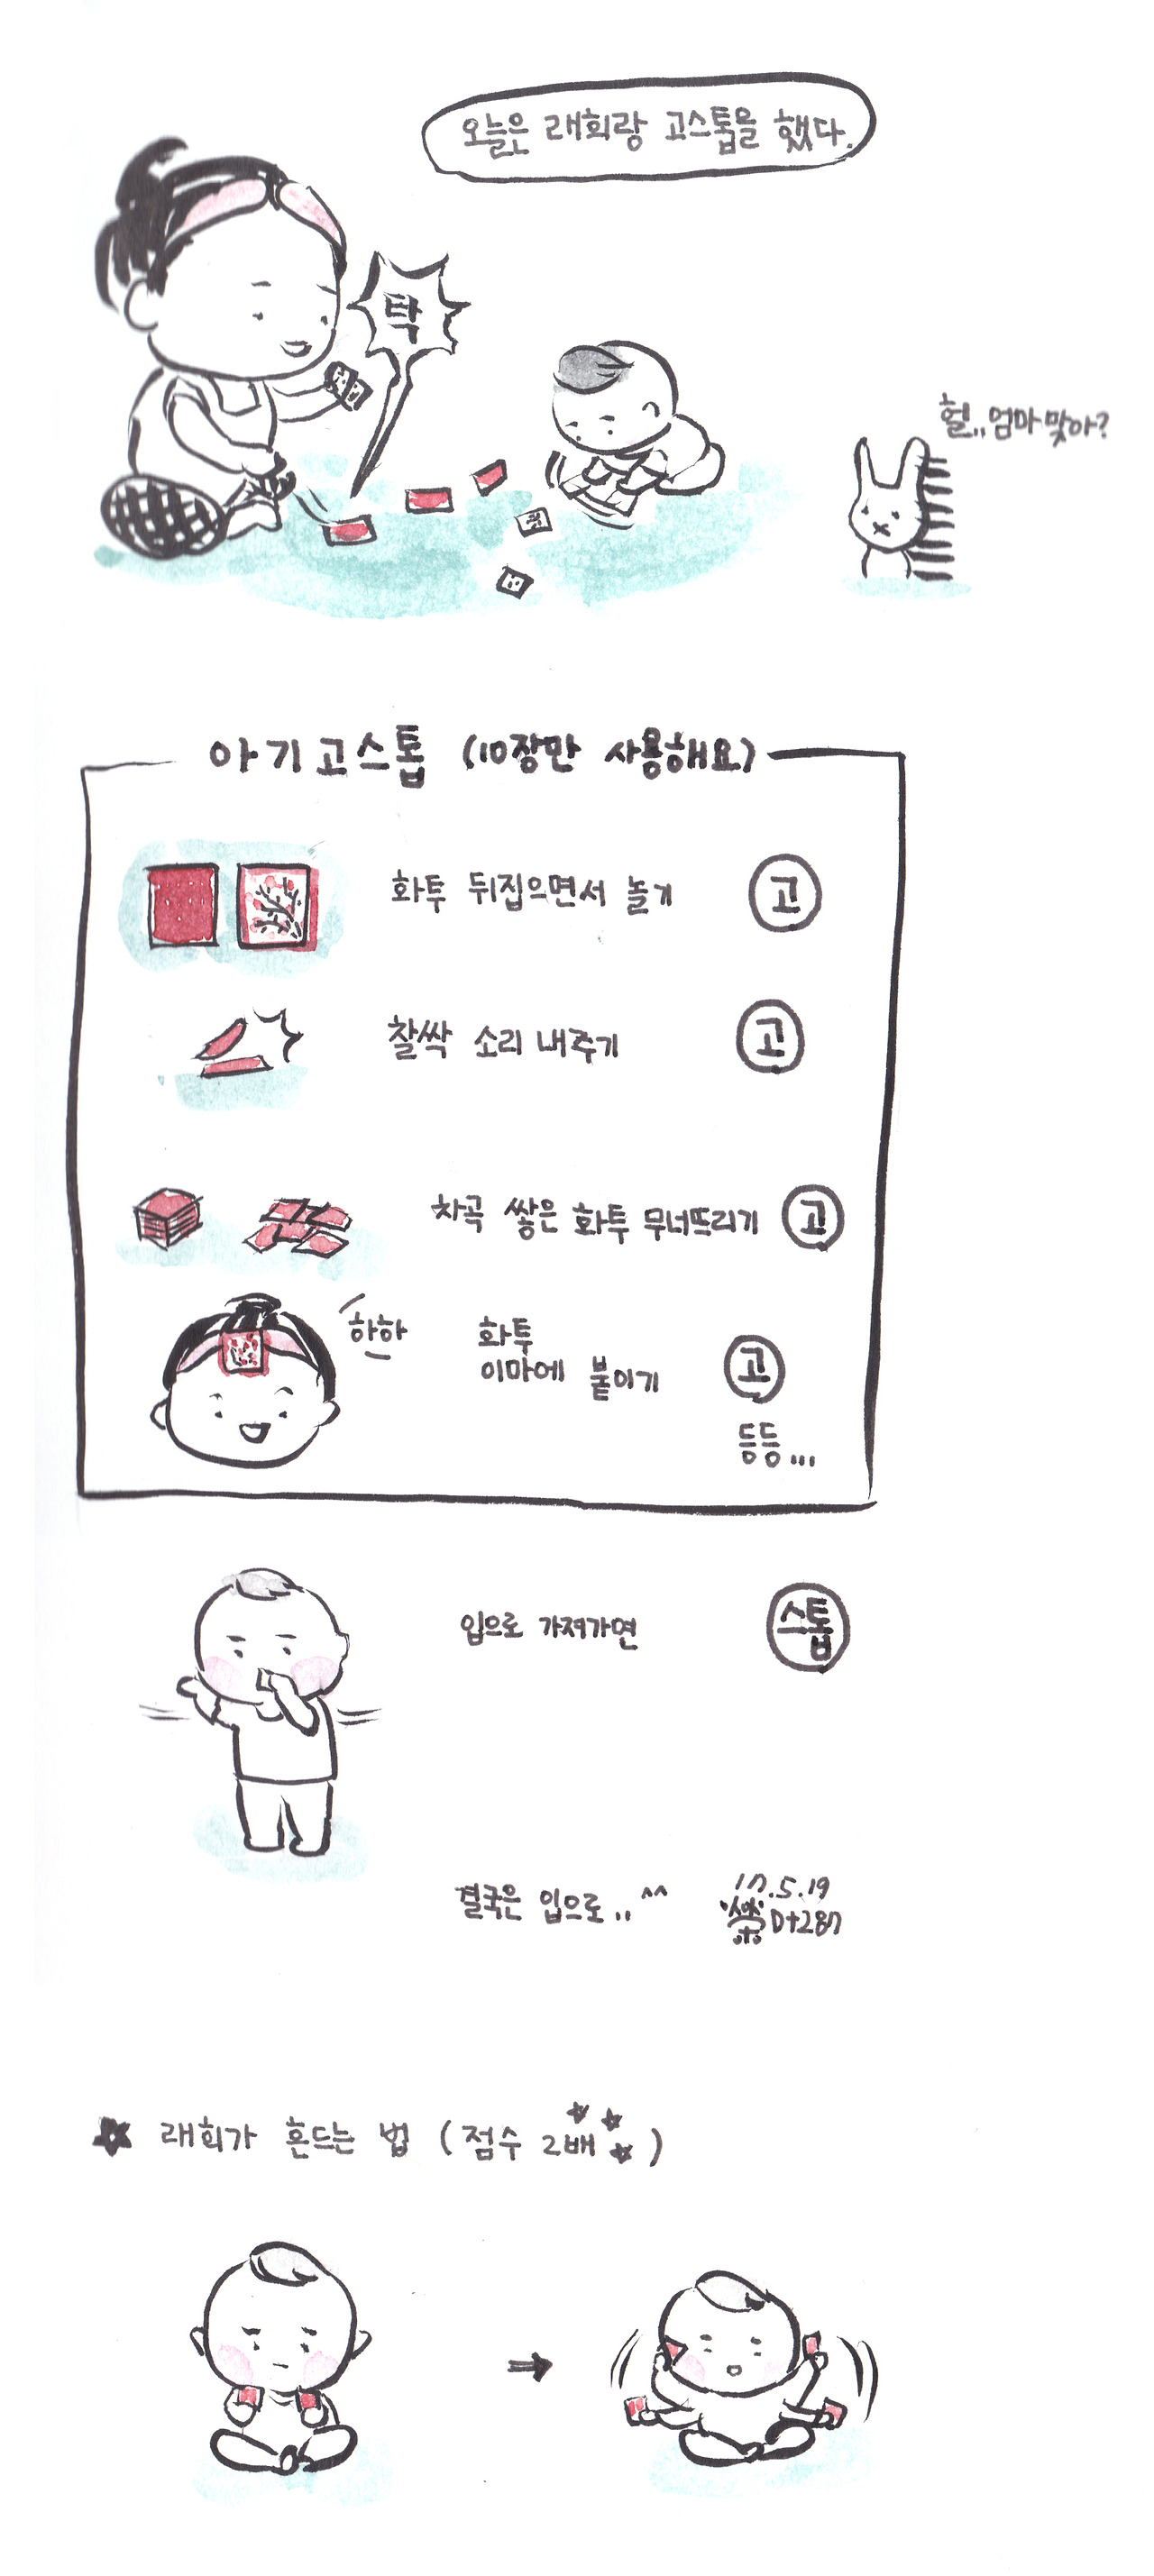 오늘은 래희랑 고스톱을 했다.
탁
헐.. 엄마 맞아?
아기고스톱 (10장만 사용해요)
화투 뒤집으면서 놀기 고
찰싹 소리 내주기 고
차곡 쌓은 화투 무너뜨리기 고
하하
화투
이마에 붙이기 고
등등...
입으로 가져가면 스톱
결국은 입으로.. ^^
17.5.19
D+287
래희가 흔드는 법 (점수 2배)